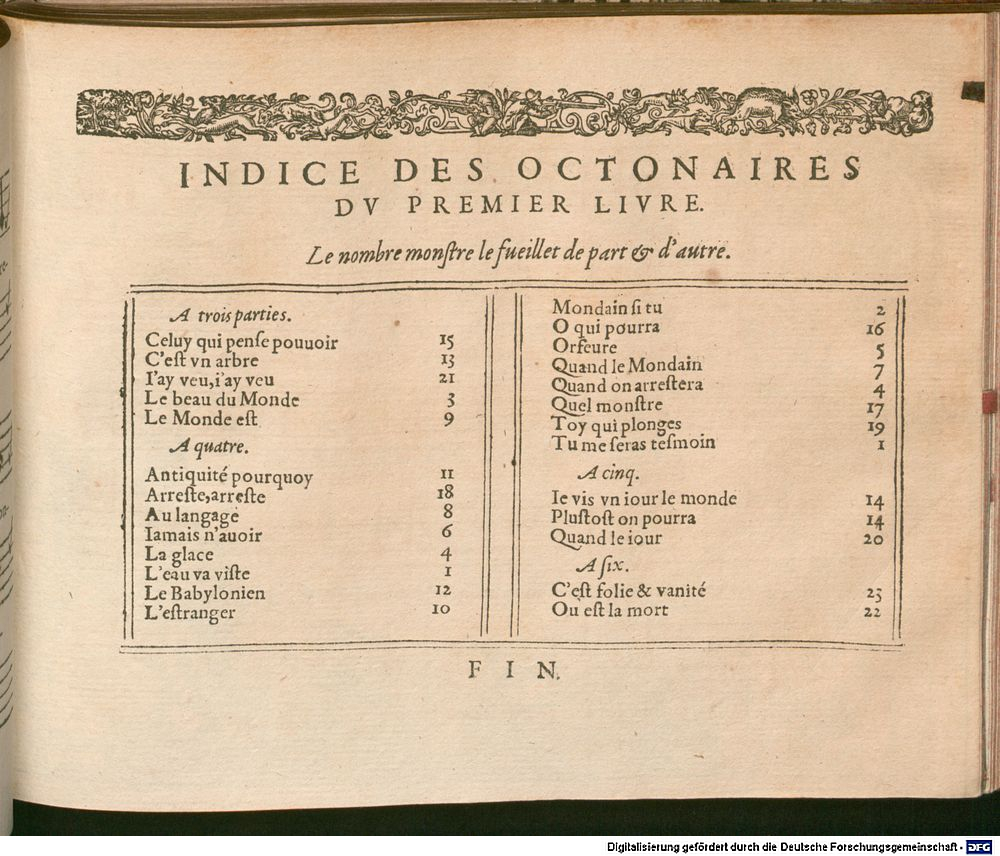 INDICE DES OCTONAIRES
DV PREMIER LIVRE.
Le nombre monſtre le fueillet de part & d'autre.
A trois parties.
Celuy qui penſe pouuoir 15
C'eſt vn arbre 13
I'ay veu, i'ay veu 21
Le beau du Monde 3
Le Monde eſt 9
A quatre.
Antiquité pourquoy 11
Arreſte, arreſte 18
Au langage 8
Iamais n'auoir 6
La glace 4
L'eau va viſte 1
Le Babylonien 12
L'eſtranger 10
Mondain ſi tu 2
O qui pourra 16
Orfeure 5
Quand le Mondain 7
Quand on arreſtera 4
Quel monſtre 17
Toy qui plonges 19
Tu me ſeras teſmoin 1
A cinq.
Ie vis vn iour le monde 14
Pluſtoſt on pourra 14
Quand le iour 20
A ſix.
C'eſt folie & vanité 23
Où eſt la mort 22
FIN.
Digitalisierung gefördert durch die Deutsche Forschungsgemeinschaft - DFG